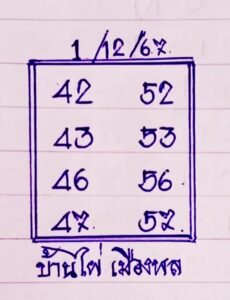 1/12/67
42 52
43 53
46 56
47 57
บ้านไผ่ เมืองพล